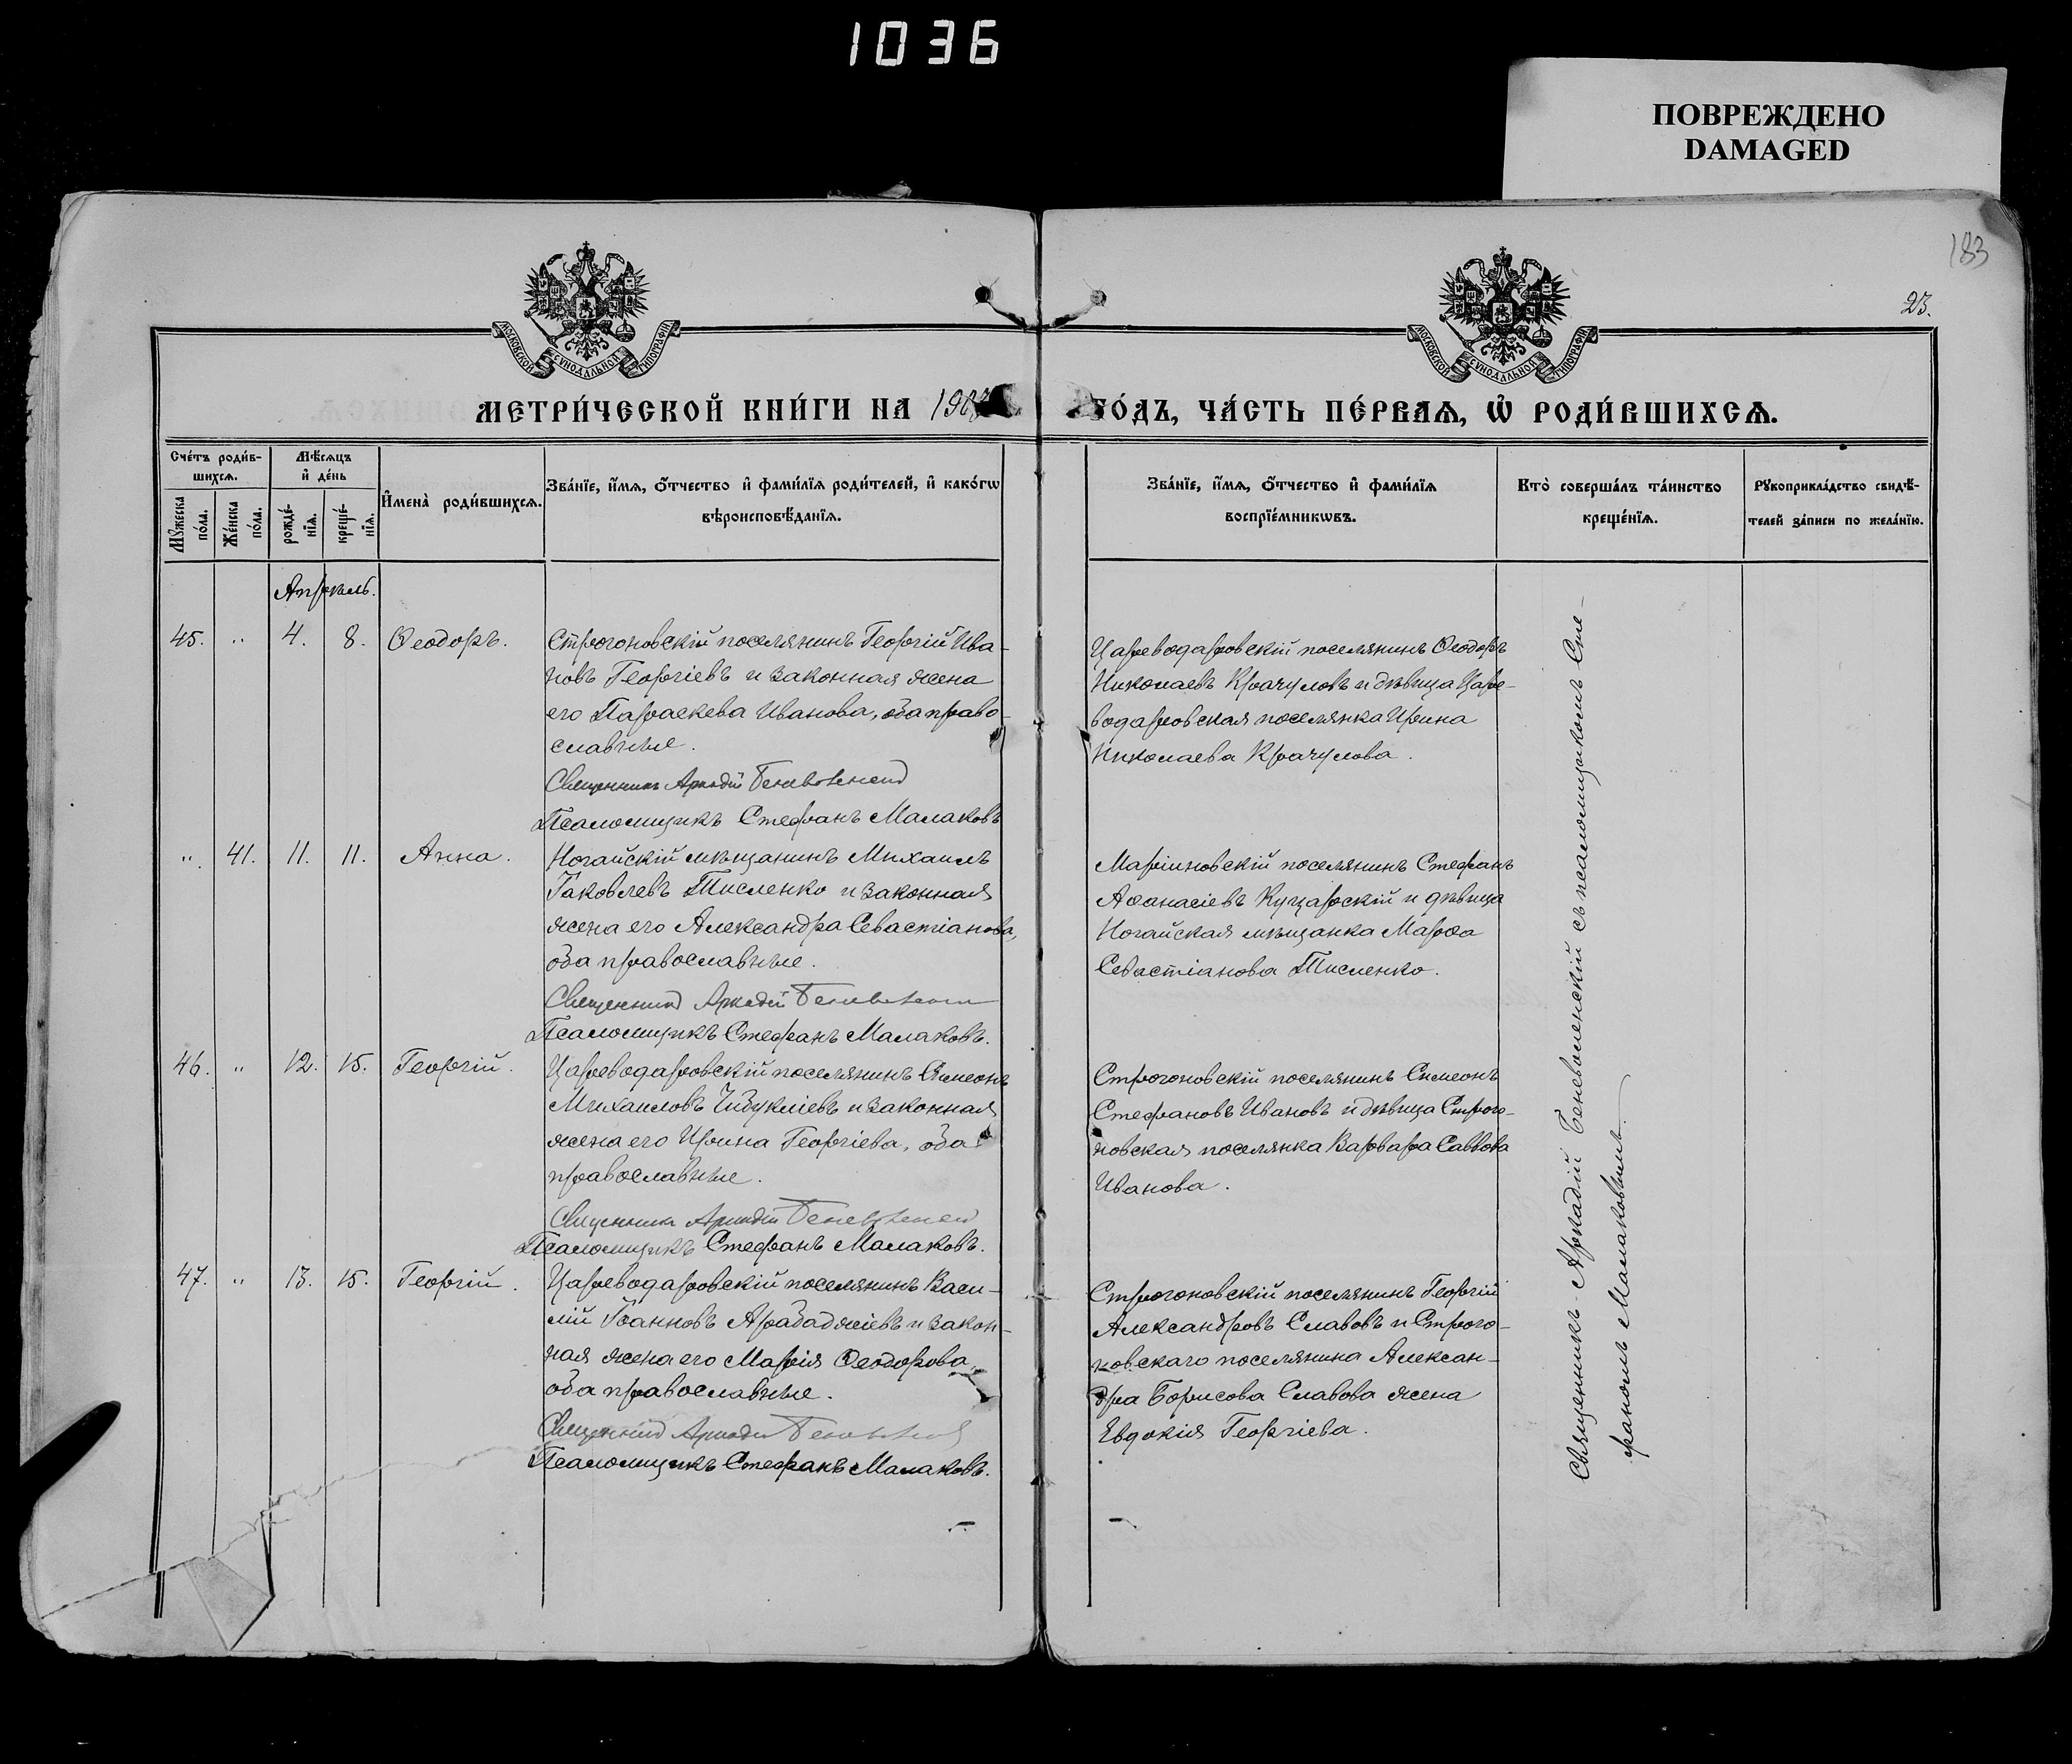 1036
ПОВРЕЖДЕНО
DAMAGED
183
23.
МОСКОВСКОЙ СѴНОДАЛЬНОЙ ТИПОГРАФІИ
МОСКОВСКОЙ СѴНОДАЛЬНОЙ ТИПОГРАФІИ
МЕТРИ́ЧЕСКОЙ КНИ́ГИ НА 190
ГО́ДЪ, ЧА́СТЬ ПЕ́РВАѦ, Ѡ҆ РОДИ́ВШИХСѦ.
Сче́тъ роди́в-
шихсѧ.
Мꙋ́жеска по́ла.
Же́нска по́ла.
Мѣ́сѧцъ
и҆ де́нь
рожде́-
нїѧ.
креще́-
нїѧ.
И҆мена̀ роди́вшихсѧ.
Зва́нїе, и҆́мѧ, ѻ҆́тчество и҆ фами́лїѧ роди́телей, и҆ како́гѡ
вѣроисповѣ́данїѧ.
Зва́нїе, и҆́мѧ, ѻ҆́тчество и҆ фами́лїѧ
воспрїе́мникѡвъ.
Кто̀ соверша́лъ та́инство
креще́нїѧ.
Рꙋкоприкла́дство свидѣ́-
телей за́писи по жела́нїю.
Апрѣль.
45. " 4. 8. Ѳеодоръ.
Строгоновскій поселянинъ Георгій Ива-
новъ Георгіевъ и законная жена
его Параскева Иванова, оба право-
славные.
Священникъ Аркадій Беневоленскій
Псаломщикъ Стефанъ Малаковъ
Цареводаровскій поселянинъ Ѳеодоръ
Николаевъ Крачуловъ и дѣвица Царе-
водаровская поселянка Ирина
Николаева Крачулова.
" 41. 11. 11. Анна.
Ногайскій мѣщанинъ Михаилъ
Іаковлевъ Тисленко и законная
жена его Александра Севастіанова,
оба православные.
Священникъ Аркадій Беневоленскій
Псаломщикъ Стефанъ Малаковъ.
Маріиновскій поселянинъ Стефанъ
Аѳанасіевъ Куцарскій и дѣвица
Ногайская мѣщанка Марѳа
Севастіанова Тисленко.
46. " 12. 15. Георгій.
Цареводаровскій поселянинъ Симеонъ
Михаиловъ Чибукліевъ и законная
жена его Ирина Георгіева, оба
православные.
Священникъ Аркадій Беневоленскій
Псаломщикъ Стефанъ Малаковъ.
Строгоновскій поселянинъ Симеонъ
Стефановъ Ивановъ и дѣвица Строго-
новская поселянка Варвара Саввова
Иванова.
47. " 13. 15. Георгій.
Цареводаровскій поселянинъ Васи-
лій Іоанновъ Арабаджіевъ и закон-
ная жена его Марія Ѳеодорова,
оба православные.
Священникъ Аркадій Беневоленскій
Псаломщикъ Стефанъ Малаковъ.
Строгоновскій поселянинъ Георгій
Александровъ Славовъ и Строго-
новскаго поселянина Алексан-
дра Борисова Славова жена
Евдокія Георгіева.
Священникъ Аркадій Беневоленскій съ псаломщикомъ Сте-
фаномъ Малаковымъ.